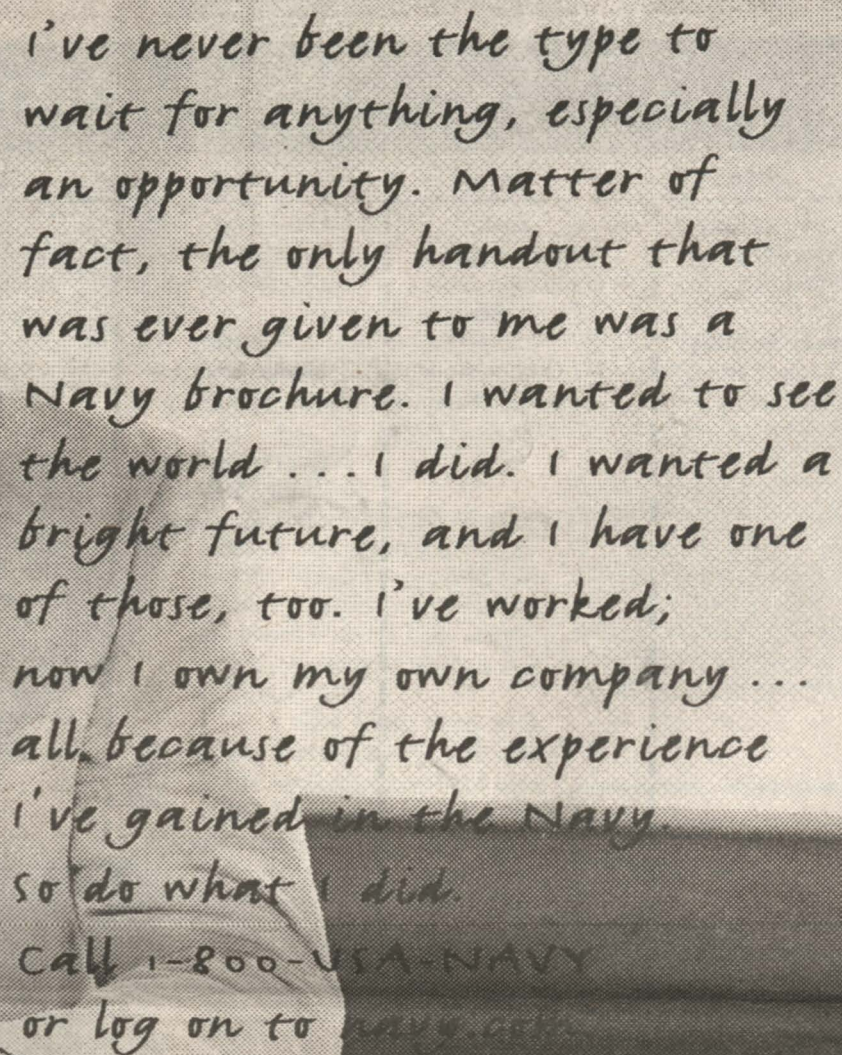 I've never been the type to
wait for anything, especially
an opportunity. Matter of
fact, the only handout that
was ever given to me was a
Navy brochure. I wanted to see
the world ... I did. I wanted a
bright future, and I have one
of those, too. I've worked;
now I own my own company ...
all because of the experience
I've gained in the Navy.
So do what I did.
Call 1-800-USA-NAVY
or log on to navy.com